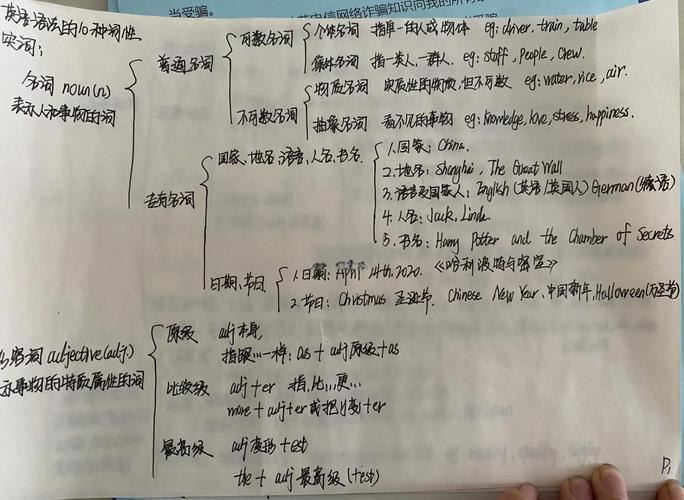 当受骗。
电信网络诈骗知识问我的所
英语语法的10种词性
实词：
名词 noun(n)
表示人和事物的词
普通名词
可数名词
个体名词 指单一的人或物体 eg: driver, train, table
集体名词 指一类人,一群人. eg: staff, people, crew.
不可数名词
物质名词 实质性的物质,但不可数 eg: water, rice, air.
抽象名词 看不见的事物 eg: knowledge, love, stress, happiness.
专有名词
国家、地名、语言、人名、书名.
1.国家: China.
2.地名: Shanghai, The Great Wall
3.语言及国家人: English (英语/英国人) German (德语)
4.人名: Jack, Linda.
5.书名: Harry Potter and the Chamber of Secrets
《哈利波特与密室》
日期、节日
1.日期: April 14th, 2020.
2.节日: Christmas 圣诞节. Chinese New Year、中国新年, Halloween(万圣节)
容词 adjective(adj.)
示事物的特质属性的词
原级 adj本身,
指跟...一样: as + adj原级 + as
比较级 adj + er 指,比...更...
more + adj + er 或把y变 + er
最高级 adj变形 + est
the + adj 最高级 (+est)
P1